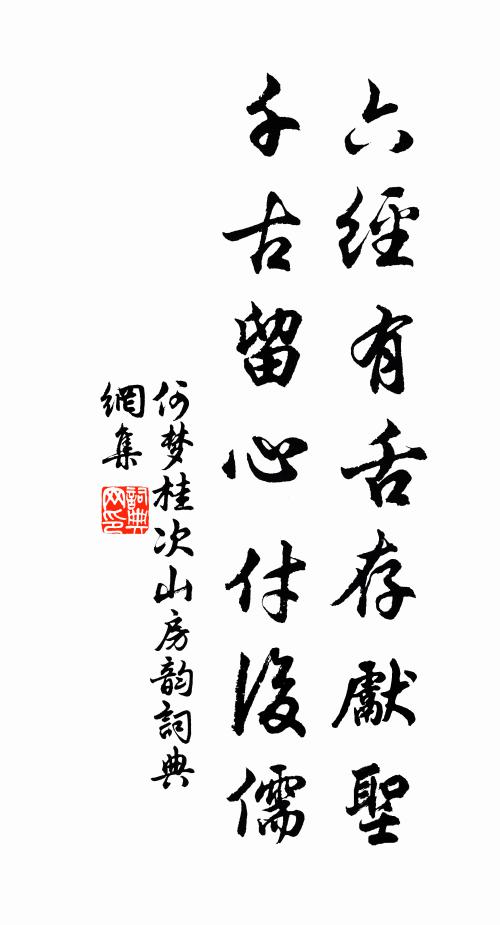 六經有舌存獻聖
千古留心付後儒
何梦桂次山房韵詞典
網集
詞典網印